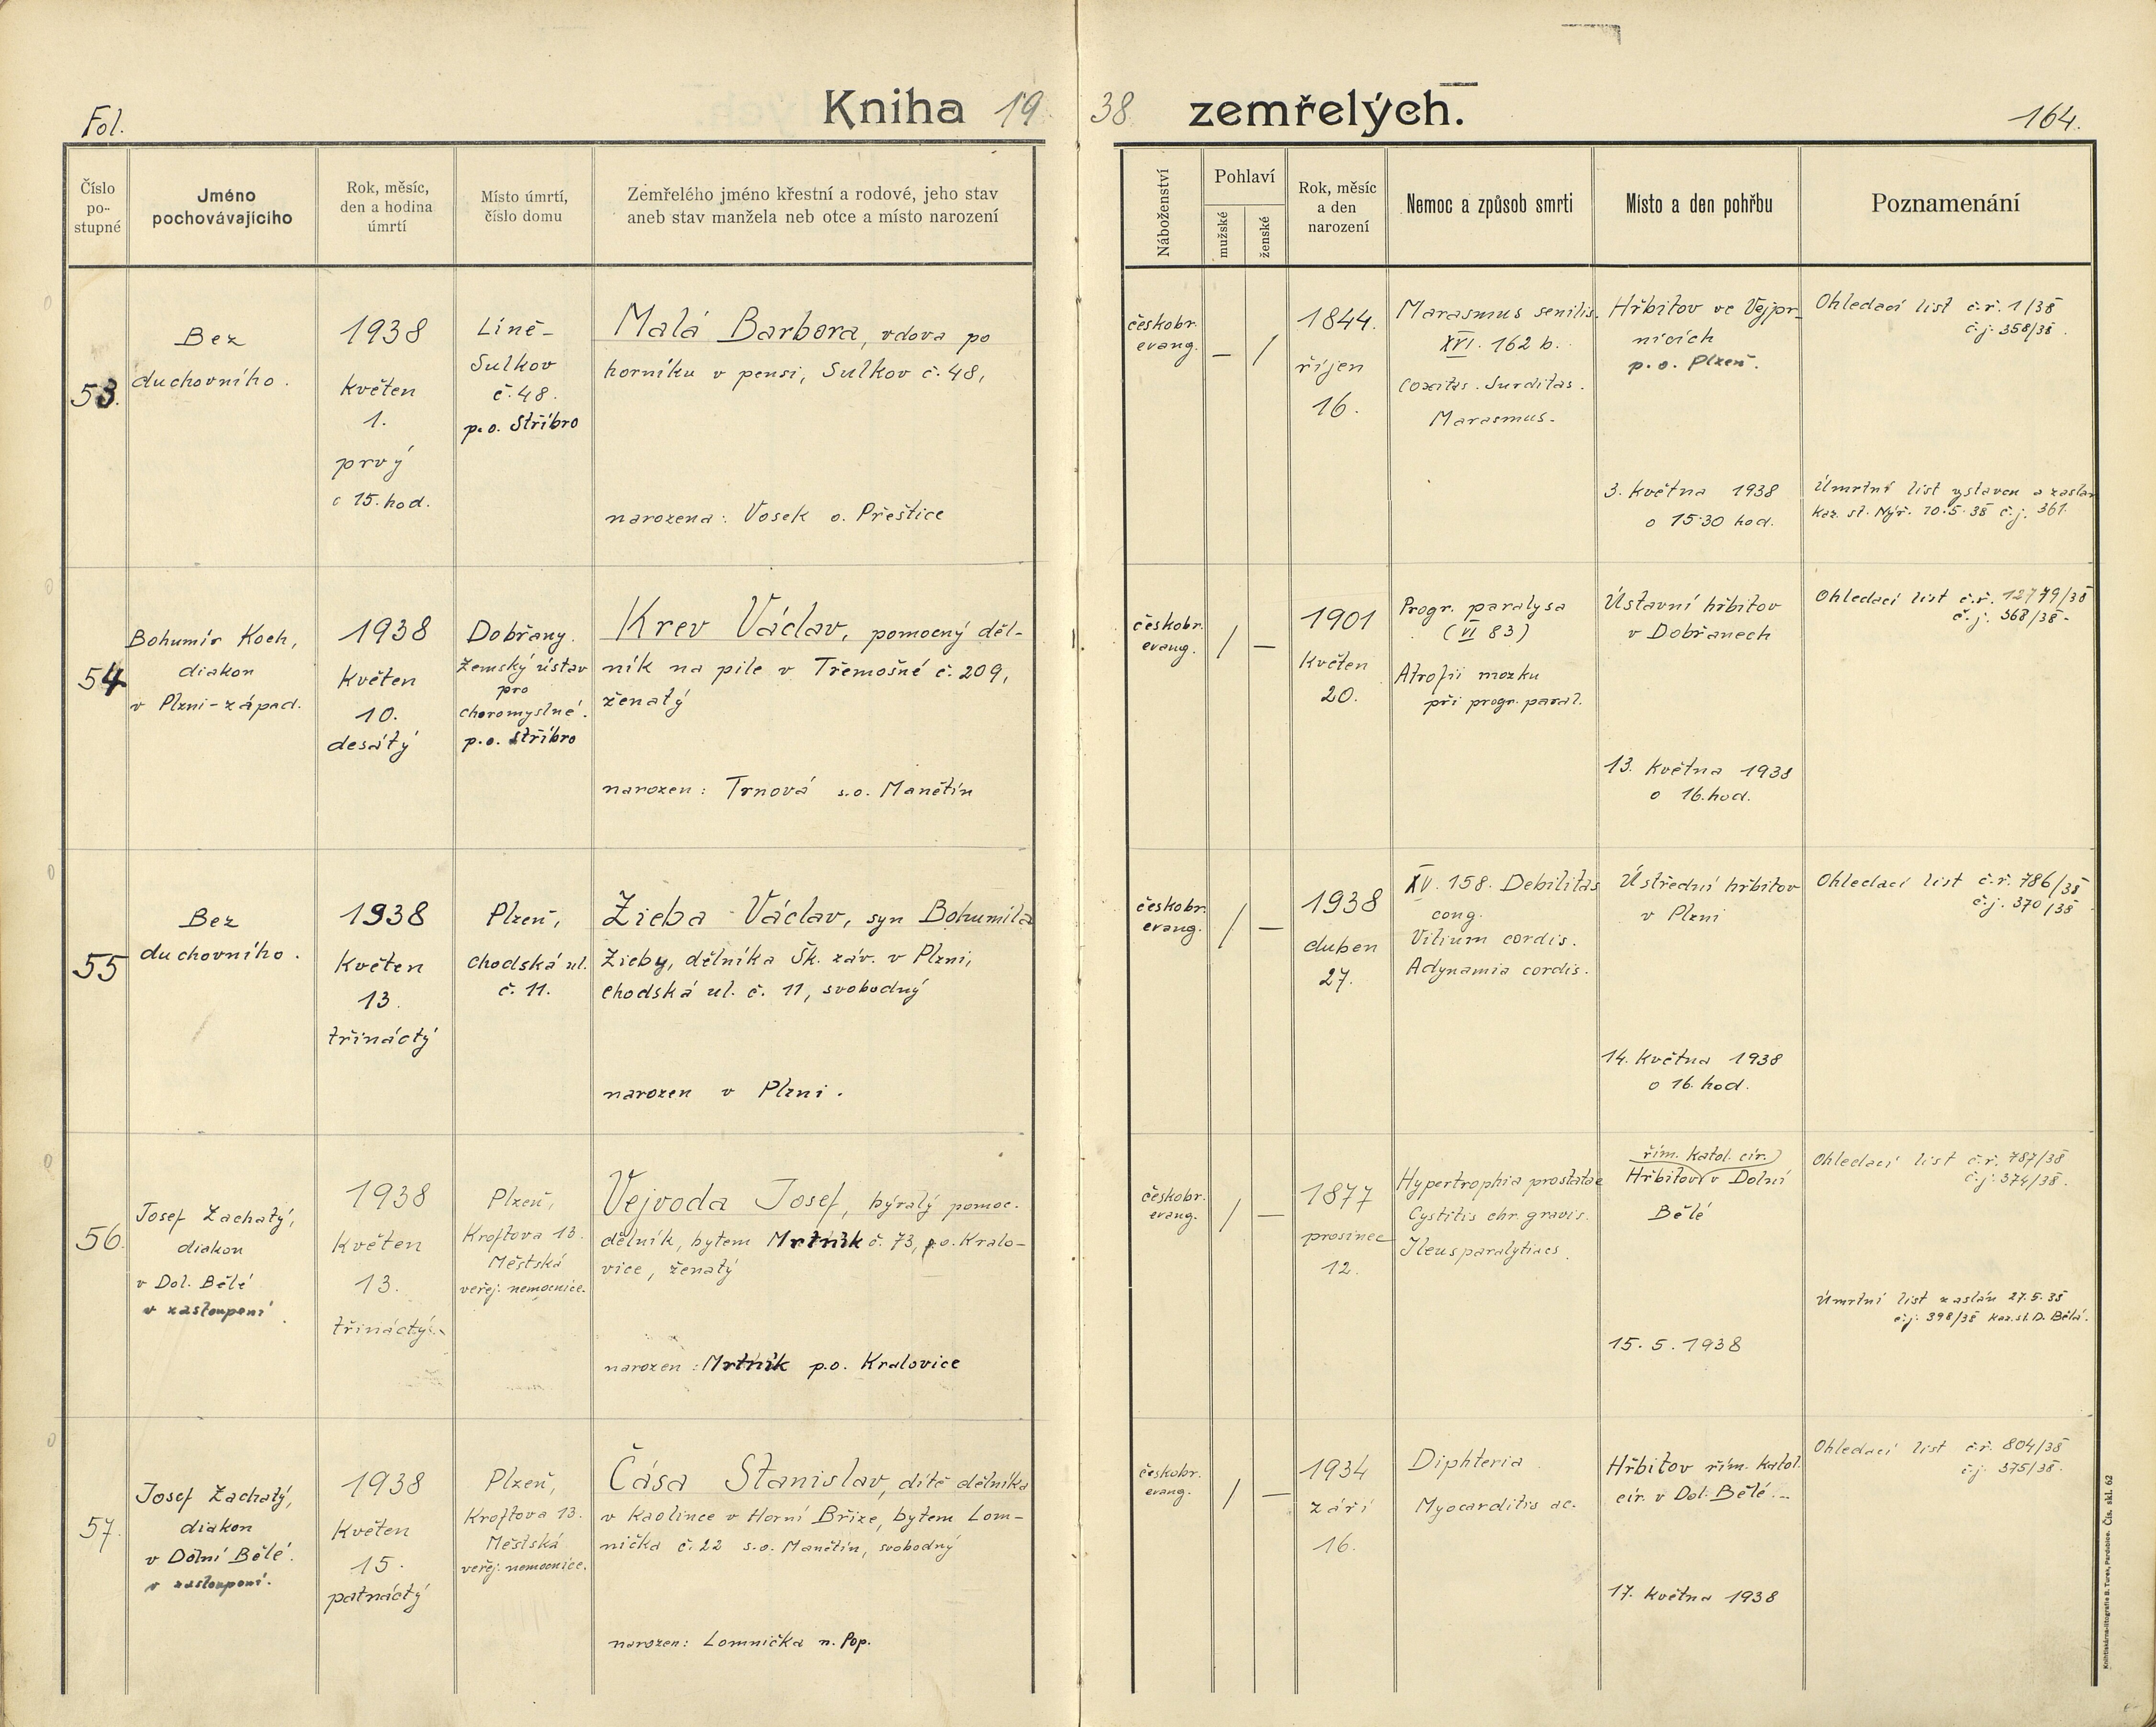 Fol.
Kniha 1938 zemřelých.
164.
Číslo
po-
stupné
Jméno
pochovávajícího
Rok, měsíc,
den a hodina
úmrtí
Místo úmrtí,
číslo domu
Zemřelého jméno křestní a rodové, jeho stav
aneb stav manžela neb otce a místo narození
Náboženství
Pohlaví
mužské
ženské
Rok, měsíc
a den
narození
Nemoc a způsob smrti
Místo a den pohřbu
Poznamenání
53.
Bez
duchovního.
1938
Květen
1.
prvý
o 15. hod.
Líně-
Sulkov
č. 48.
p.o. Stříbro
Malá Barbora, vdova po
horníku v pensi, Sulkov č. 48,
narozena: Vosek o. Přeštice
českobr.
evang.
— /
1844.
říjen
16.
Marasmus senilis.
XVI. 162 b.
Coxitas. Surditas.
Marasmus.
Hřbitov ve Vejpr-
nicích
p.o. Plzeň.
3. května 1938
o 15·30 hod.
Ohledací list č.ř. 1/38
č.j. 358/38.
Úmrtní list vystaven a zaslán
kaz. st. Nýř. 10.5.38 č.j. 361.
54
Bohumír Koch,
diakon
v Plzni-západ.
1938
Květen
10.
desátý
Dobřany.
Zemský ústav
pro
choromyslné.
p.o. Stříbro
Krev Václav, pomocný děl-
ník na pile v Třemošné č. 209,
ženatý
narozen: Trnová s.o. Manětín
českobr.
evang.
/ —
1901
Květen
20.
Progr. paralysa
(VI 83)
Atrofii mozku
při progr. paral.
Ústavní hřbitov
v Dobřanech
13. Května 1938
o 16. hod.
Ohledací list č.ř. 12779/38
č.j. 368/38.
55
Bez
duchovního.
1938
Květen
13.
třináctý
Plzeň,
Chodská ul.
č. 11.
Zieba Václav, syn Bohumila
Zieby, dělníka Šk. záv. v Plzni,
Chodská ul. č. 11, svobodný
narozen v Plzni.
českobr.
evang.
/ —
1938
duben
27.
XV. 158. Debilitas
cong.
Vitium cordis.
Adynamia cordis.
Ústřední hřbitov
v Plzni
14. Května 1938
o 16. hod.
Ohledací list č.ř. 786/38
č.j. 370/38
56.
Josef Zachatý,
diakon
v Dol. Bělé
v zastoupení.
1938
Květen
13.
třináctý
Plzeň,
Kroftova 13.
Městská
veřej. nemocnice.
Vejvoda Josef, býralý pomoc.
dělník, bytem Mrtník č. 73, p.o. Kralo-
vice, ženatý
narozen: Mrtník p.o. Kralovice
českobr.
evang.
/ —
1877
prosinec
12.
Hypertrophia prostatae
Cystitis chr. gravis.
Ileus paralyticus.
řím. katol. cír.
Hřbitov v Dolní
Bělé
15. 5. 1938
Ohledací list č.ř. 787/38
č.j. 374/38.
Úmrtní list zaslán 27.5.38
č.j. 398/38 kaz. st. D. Bělá.
57.
Josef Zachatý,
diakon
v Dolní Bělé.
v zastoupení.
1938
Květen
15.
patnáctý
Plzeň,
Kroftova 13.
Městská
veřej. nemocnice.
Čása Stanislav, dítě dělníka
v kaolince v Horní Bříze, bytem Lom-
nička č. 22 s.o. Manětín, svobodný
narozen: Lomnička n. Pop.
českobr.
evang.
/ —
1934
září
16.
Diphteria
Myocarditis ac.
Hřbitov řím. katol.
cír. v Dol. Bělé.
17. Května 1938
Ohledací list č.ř. 804/38
č.j. 375/38.
Knihtiskárna-litografie B. Tures, Pardubice. Čís. skl. 62